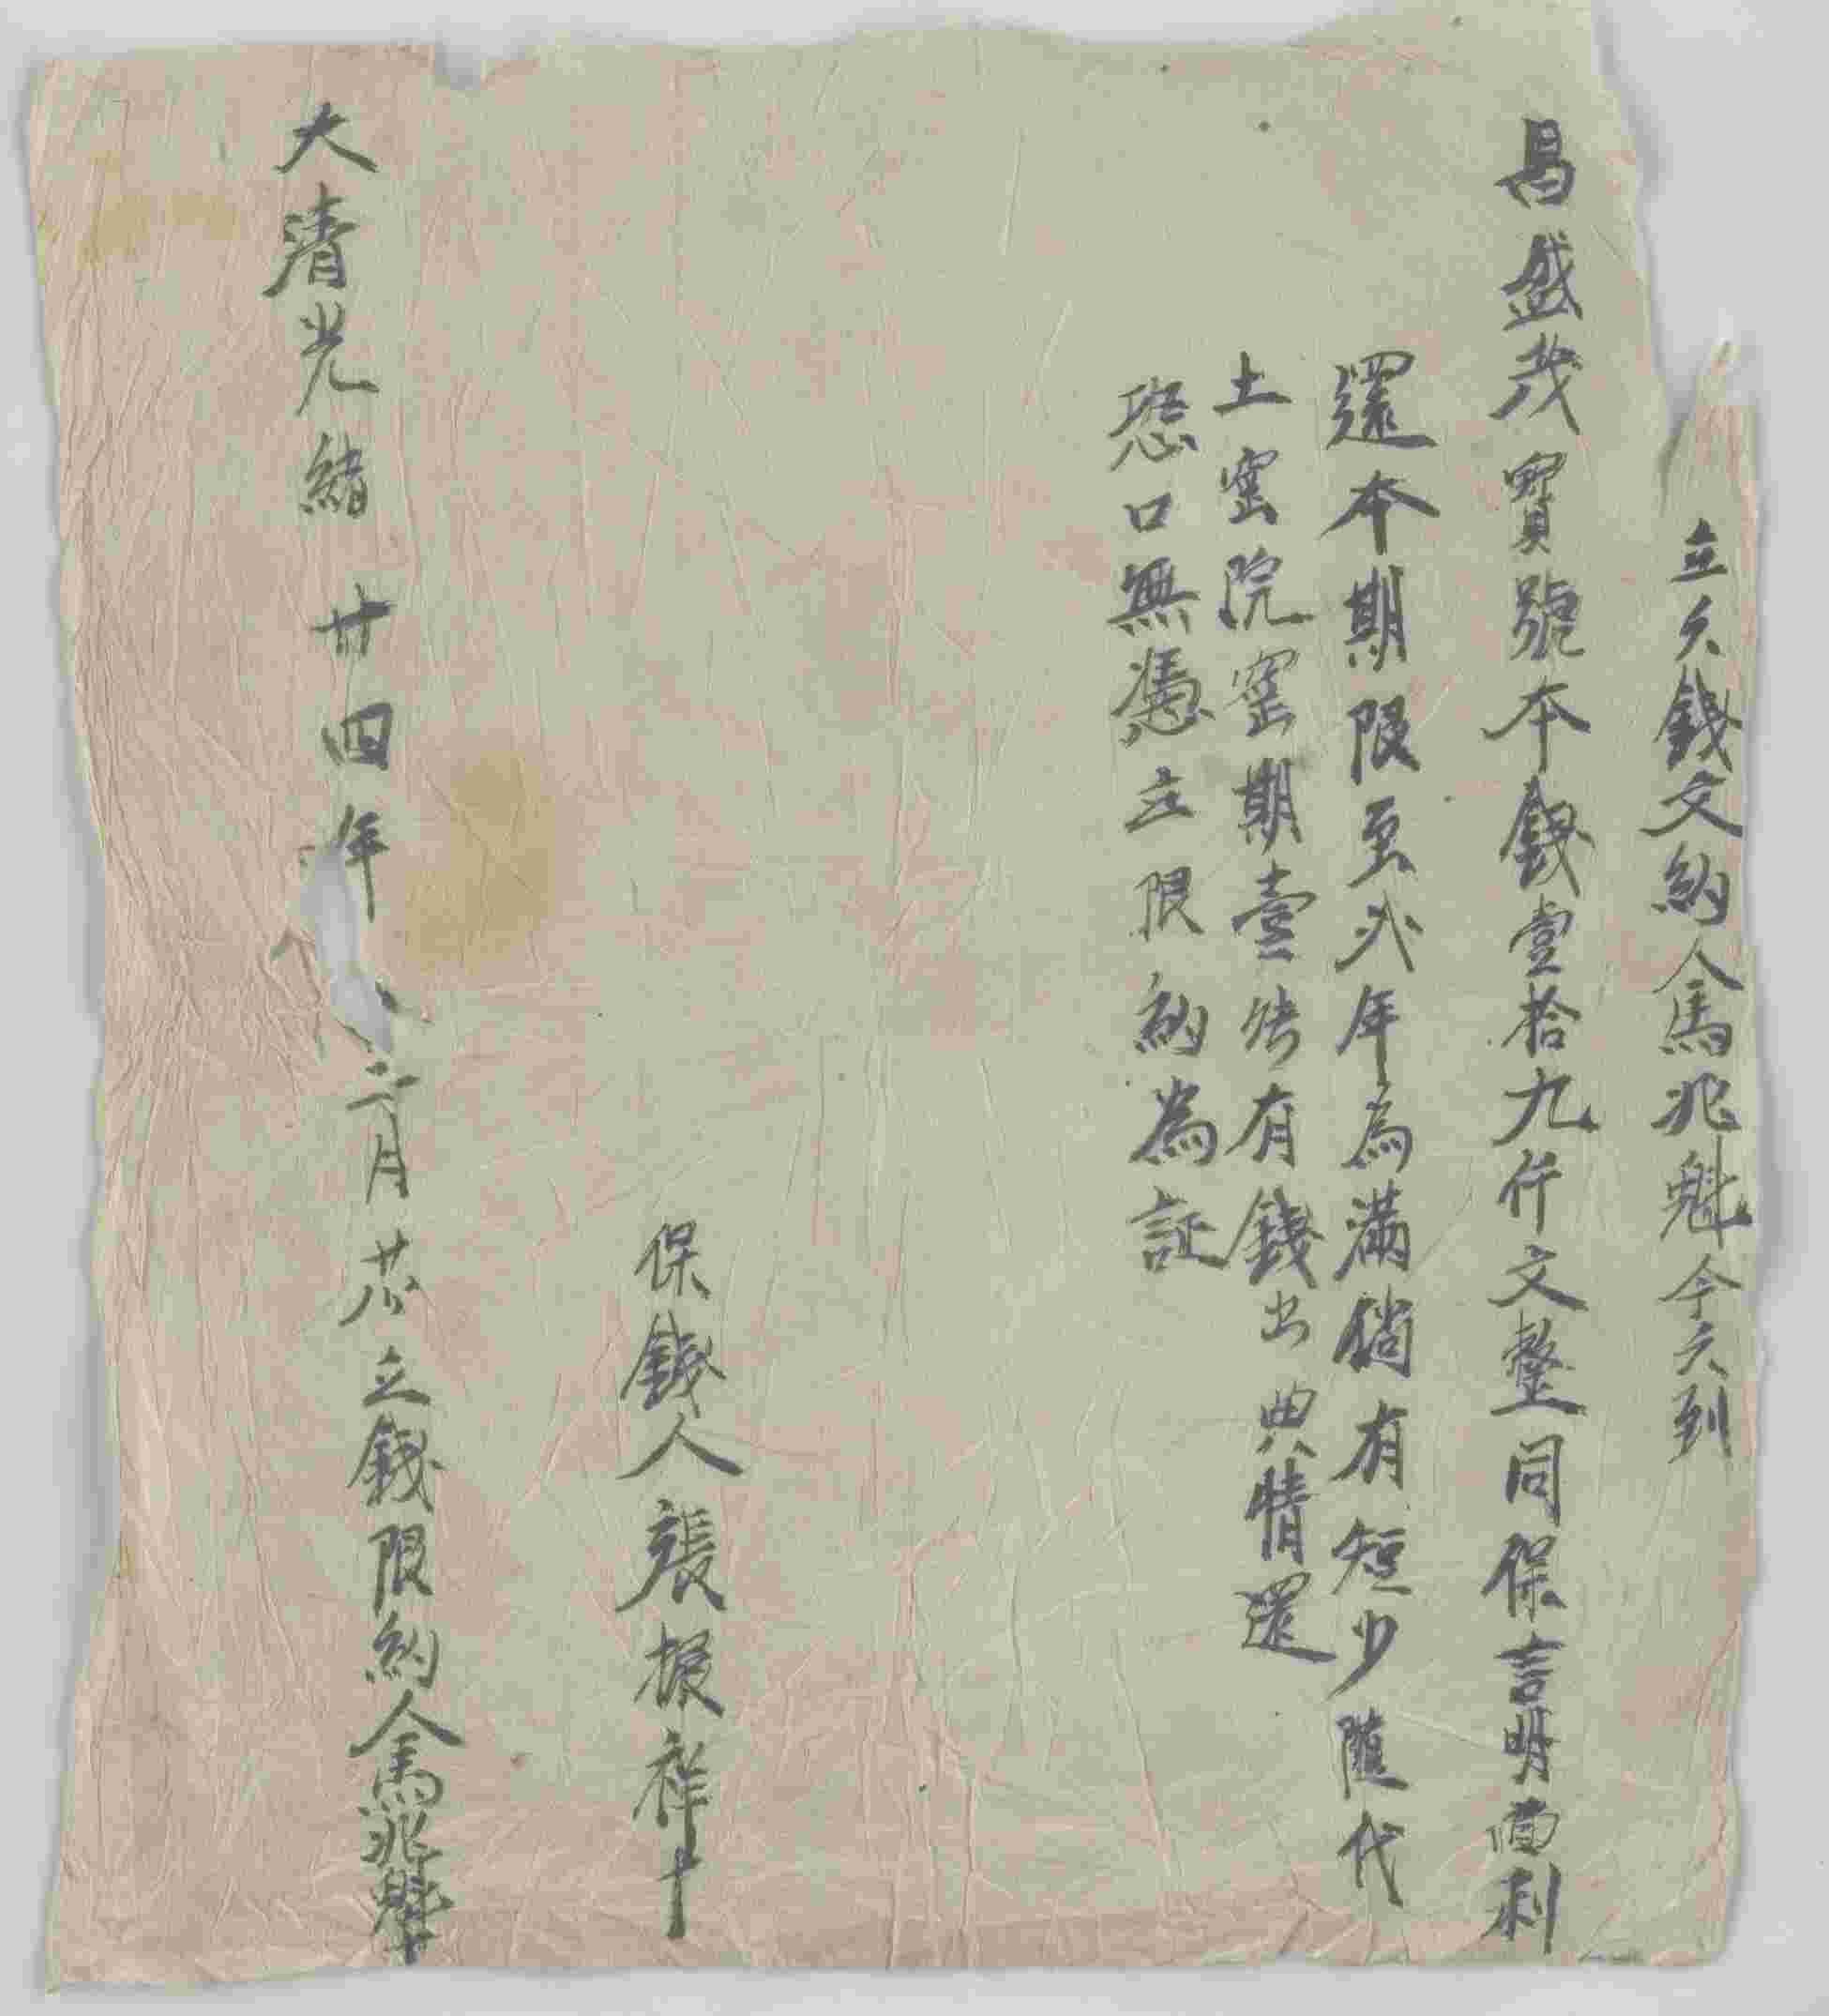 立欠錢文約人馬兆魁今欠到
昌盛茂寶號本錢壹拾九仟文整同保言明面利
還本期限至弍年為滿倘有短少隨代
土窑院窑期壹 有錢出典情還
恐口無憑立限約為証
保錢人張振祥十
大清光緒廿四年 二月 立錢限約人馬兆魁十